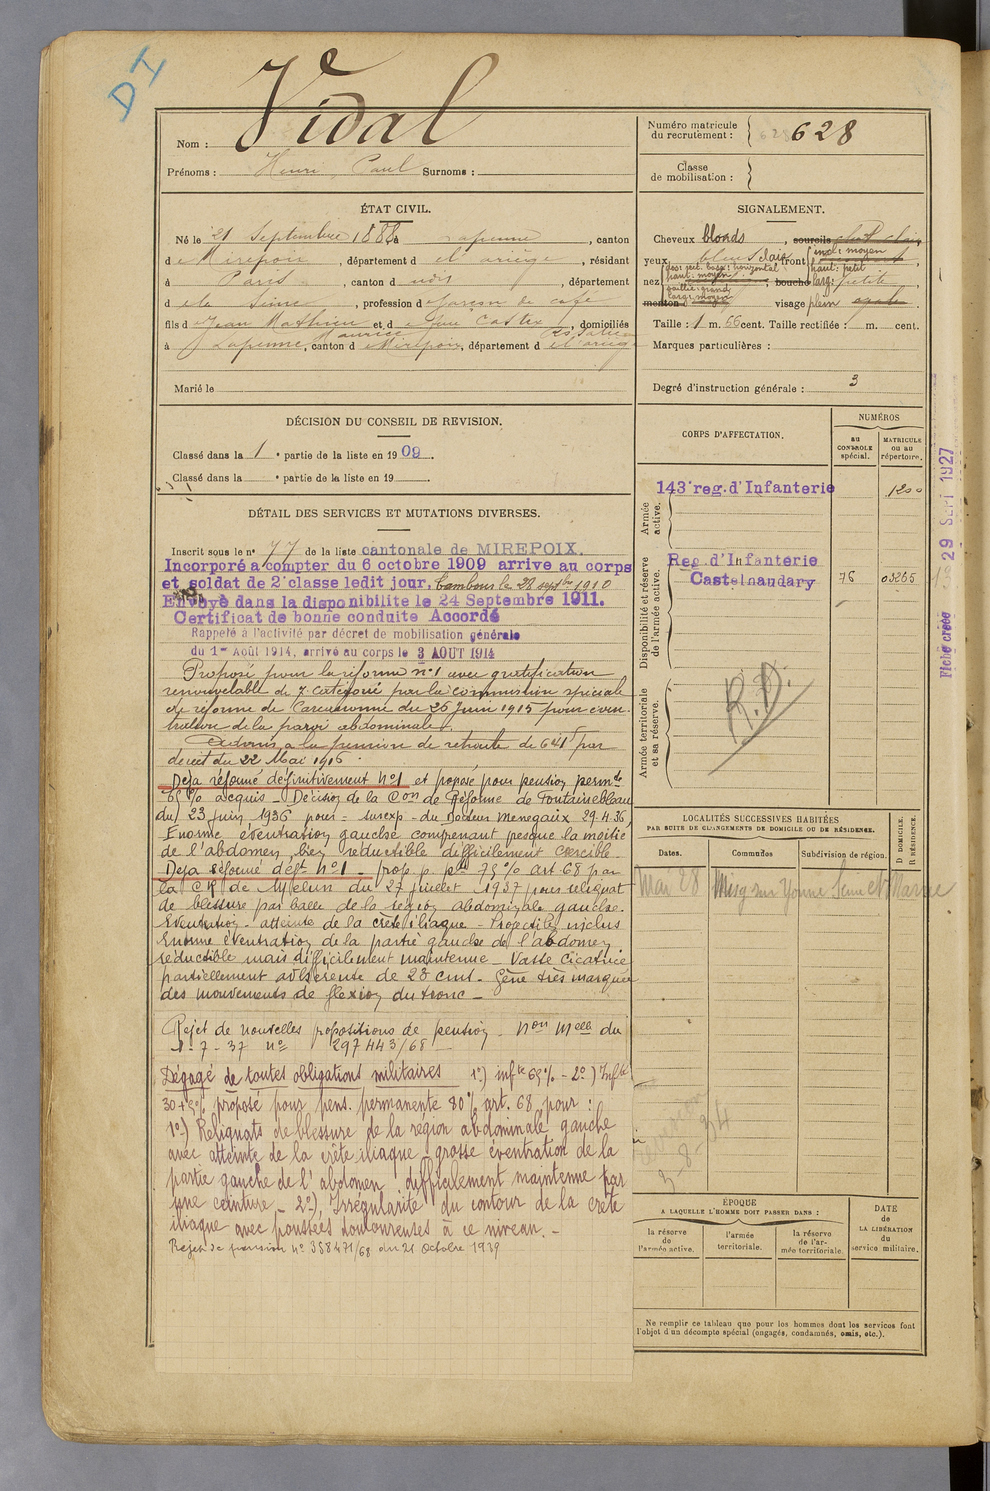 D I
Nom : Vidal
Prénoms : Henri, Paul Surnoms :
Numéro matricule du recrutement : 628
Classe de mobilisation :
ÉTAT CIVIL.
Né le 21 Septembre 1888 à Lapenne, canton
de Mirepoix, département de l'ariège, résidant
à Paris, canton d udit, département
de la Seine, profession de garçon de café
fils de Jean Mathieu et de Castex, domiciliés
à Lapenne, canton de Mirepoix, département de l'ariège
Marié le
SIGNALEMENT.
Cheveux blonds, sourcils
yeux bleus clair front incl: moyen
haut: petit
nez dos: rect. base: horizontal
haut: moyen ; bouche larg: petite
saillie: grand
larg: moyen
menton visage plein
Taille : 1 m. 66 cent. Taille rectifiée : m. cent.
Marques particulières :
Degré d'instruction générale : 3
DÉCISION DU CONSEIL DE REVISION.
Classé dans la 1 e partie de la liste en 1909.
Classé dans la e partie de la liste en 19
DÉTAIL DES SERVICES ET MUTATIONS DIVERSES.
Inscrit sous le n° 77 de la liste cantonale de MIREPOIX.
Incorporé a compter du 6 octobre 1909 arrive au corps
et soldat de 2e classe ledit jour, Tambour le 28 septbre 1910
Envoyé dans la disponibilite le 24 Septembre 1911.
Certificat de bonne conduite Accordé
Rappelé à l'activité par décret de mobilisation générale
du 1er Août 1914, arrivé au corps le 3 AOUT 1914
Proposé pour la réforme n°1 avec gratification
renouvelable de 7 catégorie par la commission spéciale
de réforme de Carcassonne du 26 Juin 1915 pour éven
tration de la paroi abdominale.
Admis a la pension de retraite de 641f par
décret du 22 Mai 1916.
Déja réformé définitivement N°1 et proposé pour pension permte
65% acquis - Décision de la Con de Réforme de Fontainebleau
du 23 juin 1936 pour = surexp - du Docteur Menegaux 29.4.36,
Enorme éventration gauche comprenant presque la moitié
de l'abdomen, bien réductible difficilement coercible.
Déja réformé déft N°1 - prop p. pte 75% art 68 par
la CR de Melun du 27 juillet 1937 pour reliquat
de blessure par balle de la région abdominale gauche.
Eventration - atteinte de la crête iliaque - Projectile inclus
Enorme éventration de la partie gauche de l'abdomen
réductible mais difficilement maintenue - Vaste cicatrice
partiellement adhérente de 28 cent. Gêne très marquée
des mouvements de flexion du tronc -
Rejet de nouvelles propositions de pension - Non Melle du
1-7-37 n° 297443/68
Dégagé de toutes obligations militaires 1°) infté 65% - 2°) Infté
30+5% proposé pour pens. permanente 80% art. 68 pour :
1°) Reliquats de blessure de la région abdominale gauche
avec atteinte de la crête iliaque grosse éventration de la
partie gauche de l'abdomen difficilement maintenue par
une ceinture - 2°) Irrégularité du contour de la crête
iliaque avec poussées douloureuses à ce niveau. -
Rejet de pension n° 358471/68 du 21 Octobre 1939
CORPS D'AFFECTATION.
NUMÉROS
AU CONTROLE spécial.
MATRICULE OU AU répertoire.
Armée active.
143e reg. d'Infanterie 1200
Disponibilité et réserve de l'armée active.
Reg. d'Infanterie
Castelnaudary 76 03265
Armée territoriale et sa réserve.
R.D.
LOCALITÉS SUCCESSIVES HABITÉES
PAR SUITE DE CHANGEMENTS DE DOMICILE OU DE RÉSIDENCE.
Dates. Communes Subdivision de région. D. DOMICILE. R. RÉSIDENCE.
Mai 28 Misy sur Yonne Seine et Marne
3-8-34
ÉPOQUE
A LAQUELLE L'HOMME DOIT PASSER DANS :
la réserve de l'armée active.
l'armée territoriale.
la réserve de l'armée territoriale.
DATE de LA LIBÉRATION du service militaire.
Ne remplir ce tableau que pour les hommes dont les services font
l'objet d'un décompte spécial (engagés, condamnés, omis, etc.).
Fiche créée 29 SEPT 1927